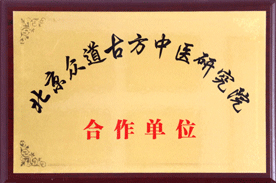 北京众道古方中医研究院
合作单位